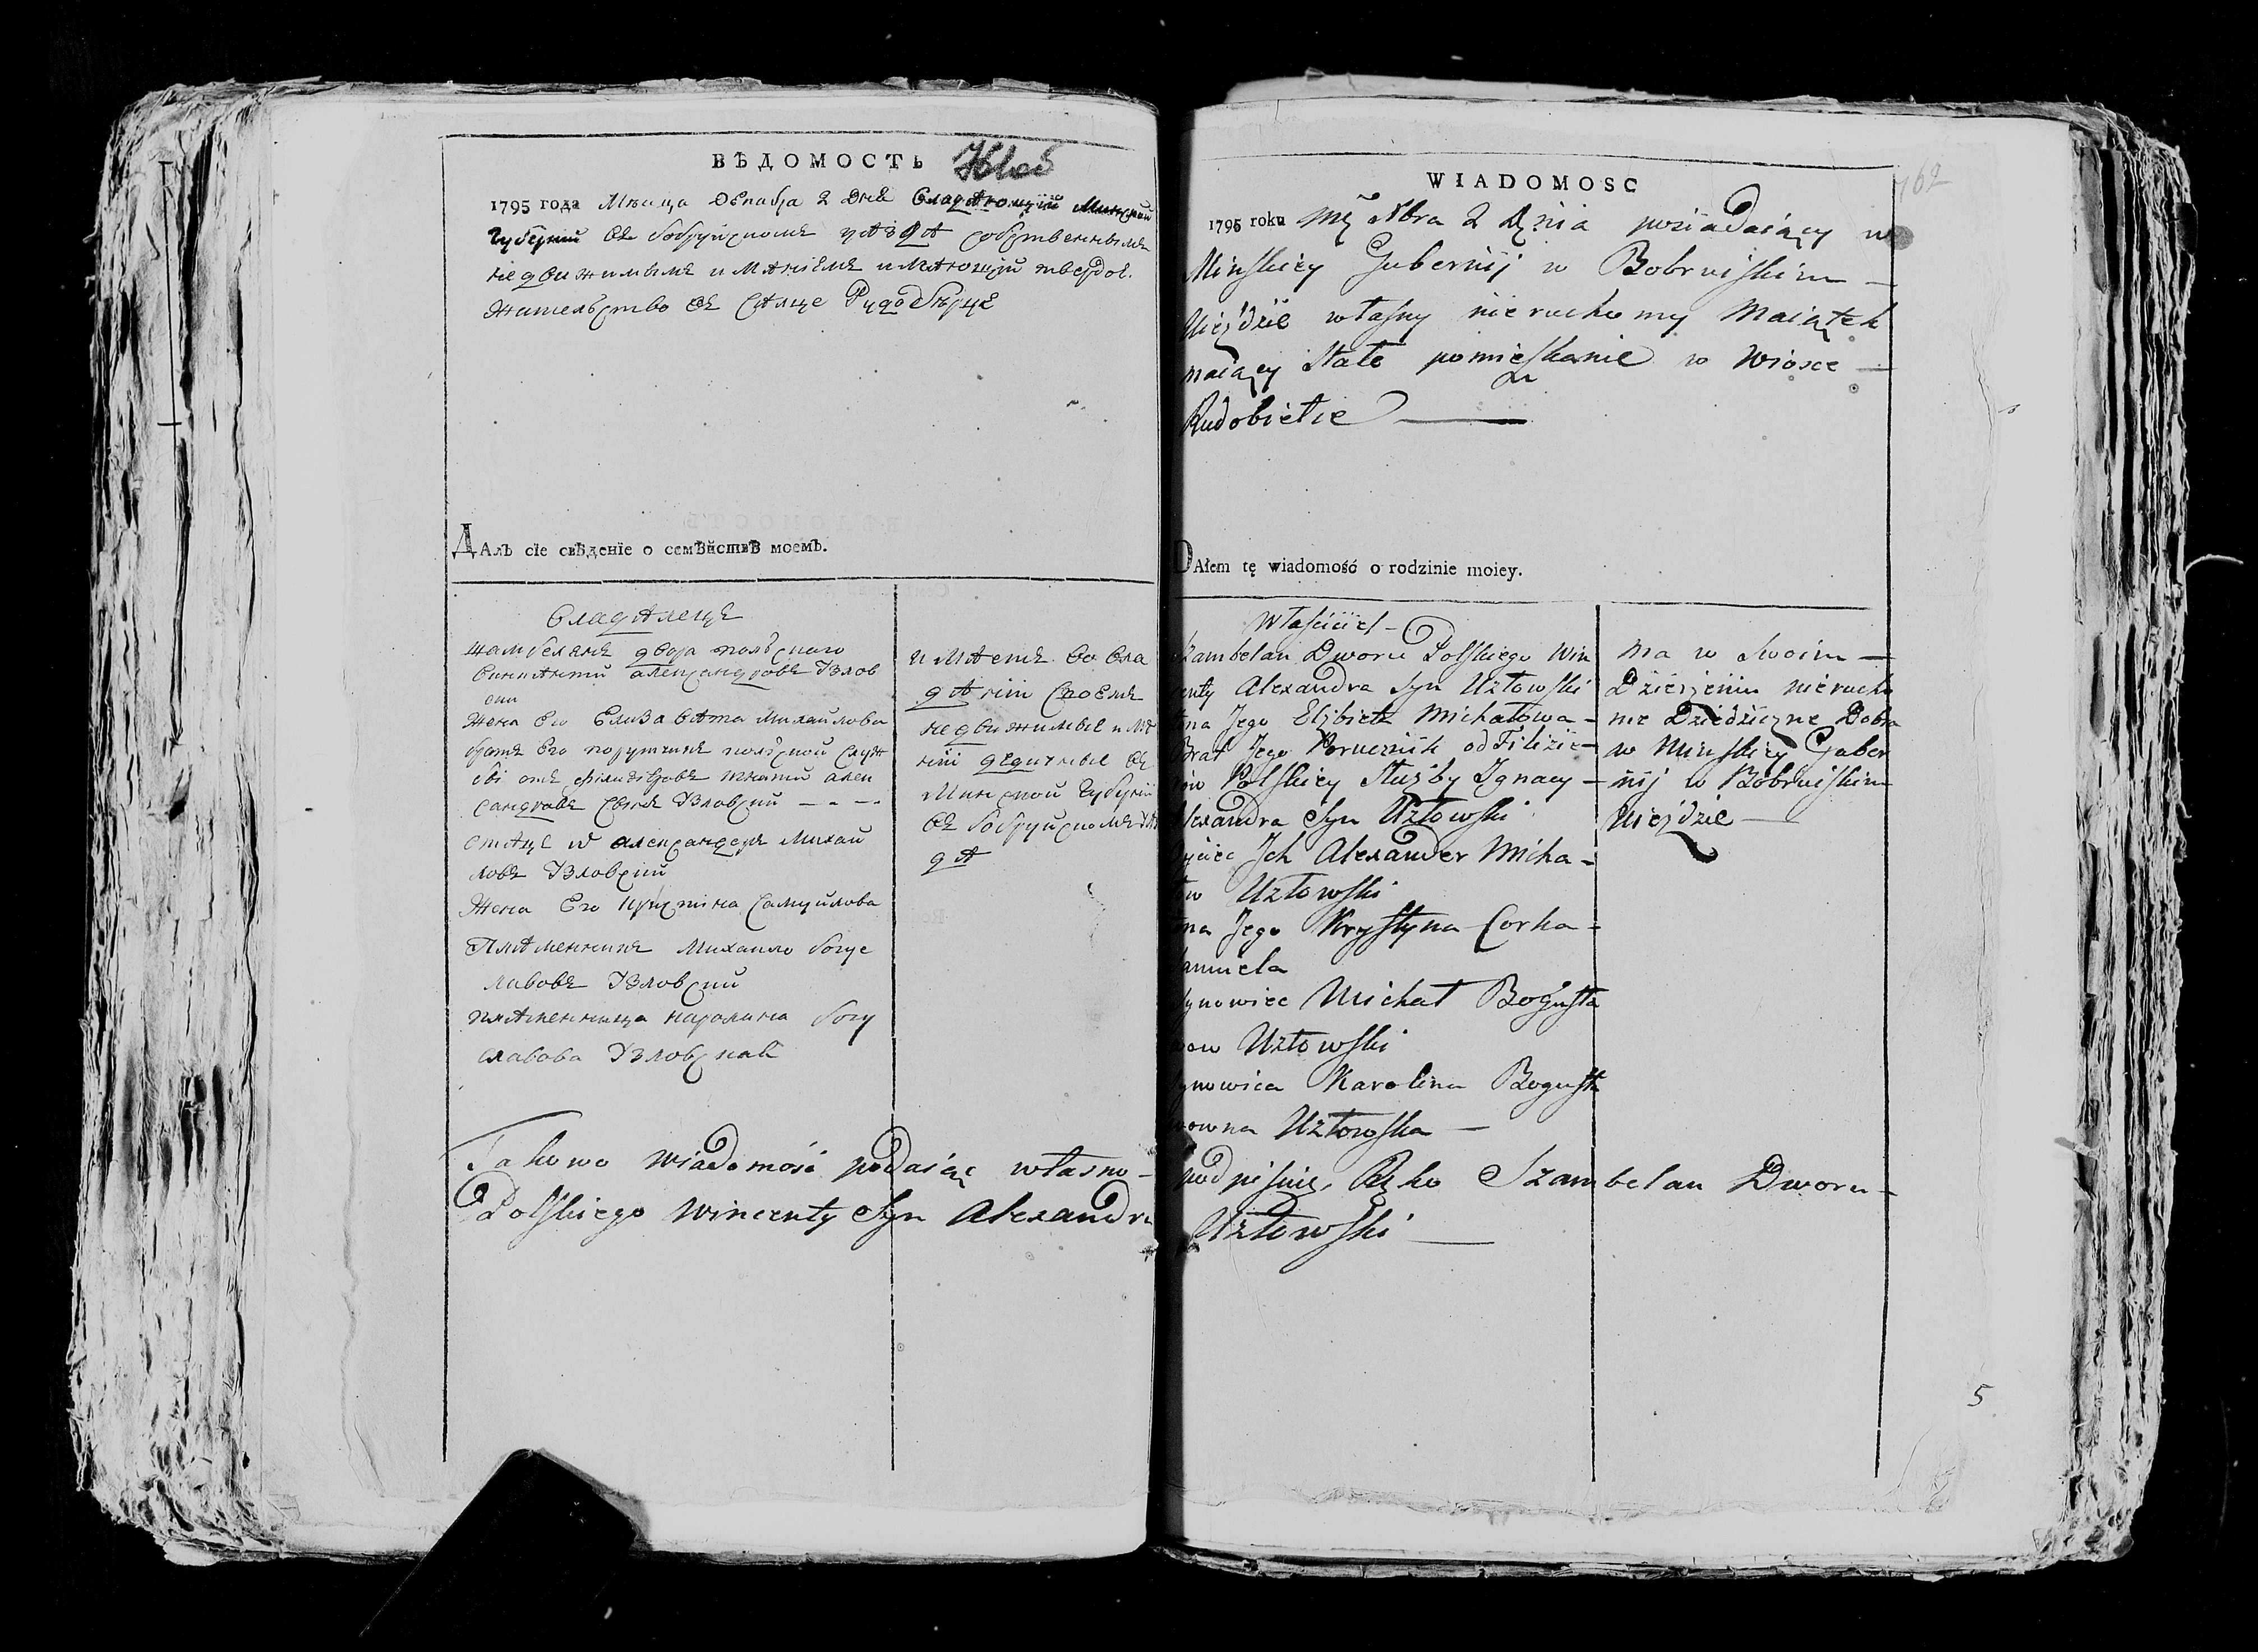 ВѢДОМОСТЬ
1795 года Мѣсяца Декабря 2 дня Владѣющій Минской
Губерніи въ Бобруйскомъ уѣздѣ собственнымъ
недвижимымъ имѣніемъ имѣющій твердое
жительство въ селце Рудобѣлце
ДАлъ сїе свѣденїе о семѣйствѣ моемъ.
Владѣлецъ
шамбелянъ двора польскаго
Винцентій Александровъ Узлов
ски
жена Его Елизавета Михайлова
братъ Его порутчикъ польской служ
бы отъ Игнатій Алек
сандровъ сынъ Узловскій
отецъ Александеръ Михай
ловъ Узловскій
жена Его Кристина Самуйлова
Племенникъ Михайло Богус
лавовъ Узловскій
племенница Каролина Богу
славова Узловская
имѣетъ во вла
дѣніи своемъ
недвижимые имѣ
ніи дедичные въ
Минской Губерніи
въ Бобруйскомъ уѣз
дѣ
WIADOMOSC
162
1795 roku Mca Xbra 2 Dnia posiadaiący w
Minskiey Gubernij w Bobruiskim
Uieździe własny nieruchomy Maiątek
maiący Stałe pomieszkanie w Wiosce
Rudobiełce
DAłem tę wiadomość o rodzinie moiey.
Właściciel
Szambelan Dworu Polskiego Win
centy Alexandra Syn Uzłowski
Żona Jego Elżbieta Michałowa
Brat Jego Porucznik od Filizie
rów Polskiey Służby Ignacy
Alexandra Syn Uzłowski
Oyciec Ich Alexander Micha
łow Uzłowski
Żona Jego Krystyna Corka
Samuela
Synowiec Michał Bogusła
wow Uzłowski
Synowica Karolina Bogusła
wowna Uzłowska
ma w Swoim
Dzierżeniu nierucho
me Dziedziczne Dobra
w Minskiey Guber
nij w Bobruiskim
Uieździe
Takowo wiadomość podaiąc własno podpisuię, Jako Szambelan Dworu
Polskiego Wincenty Syn Alexandra Uzłowski
5